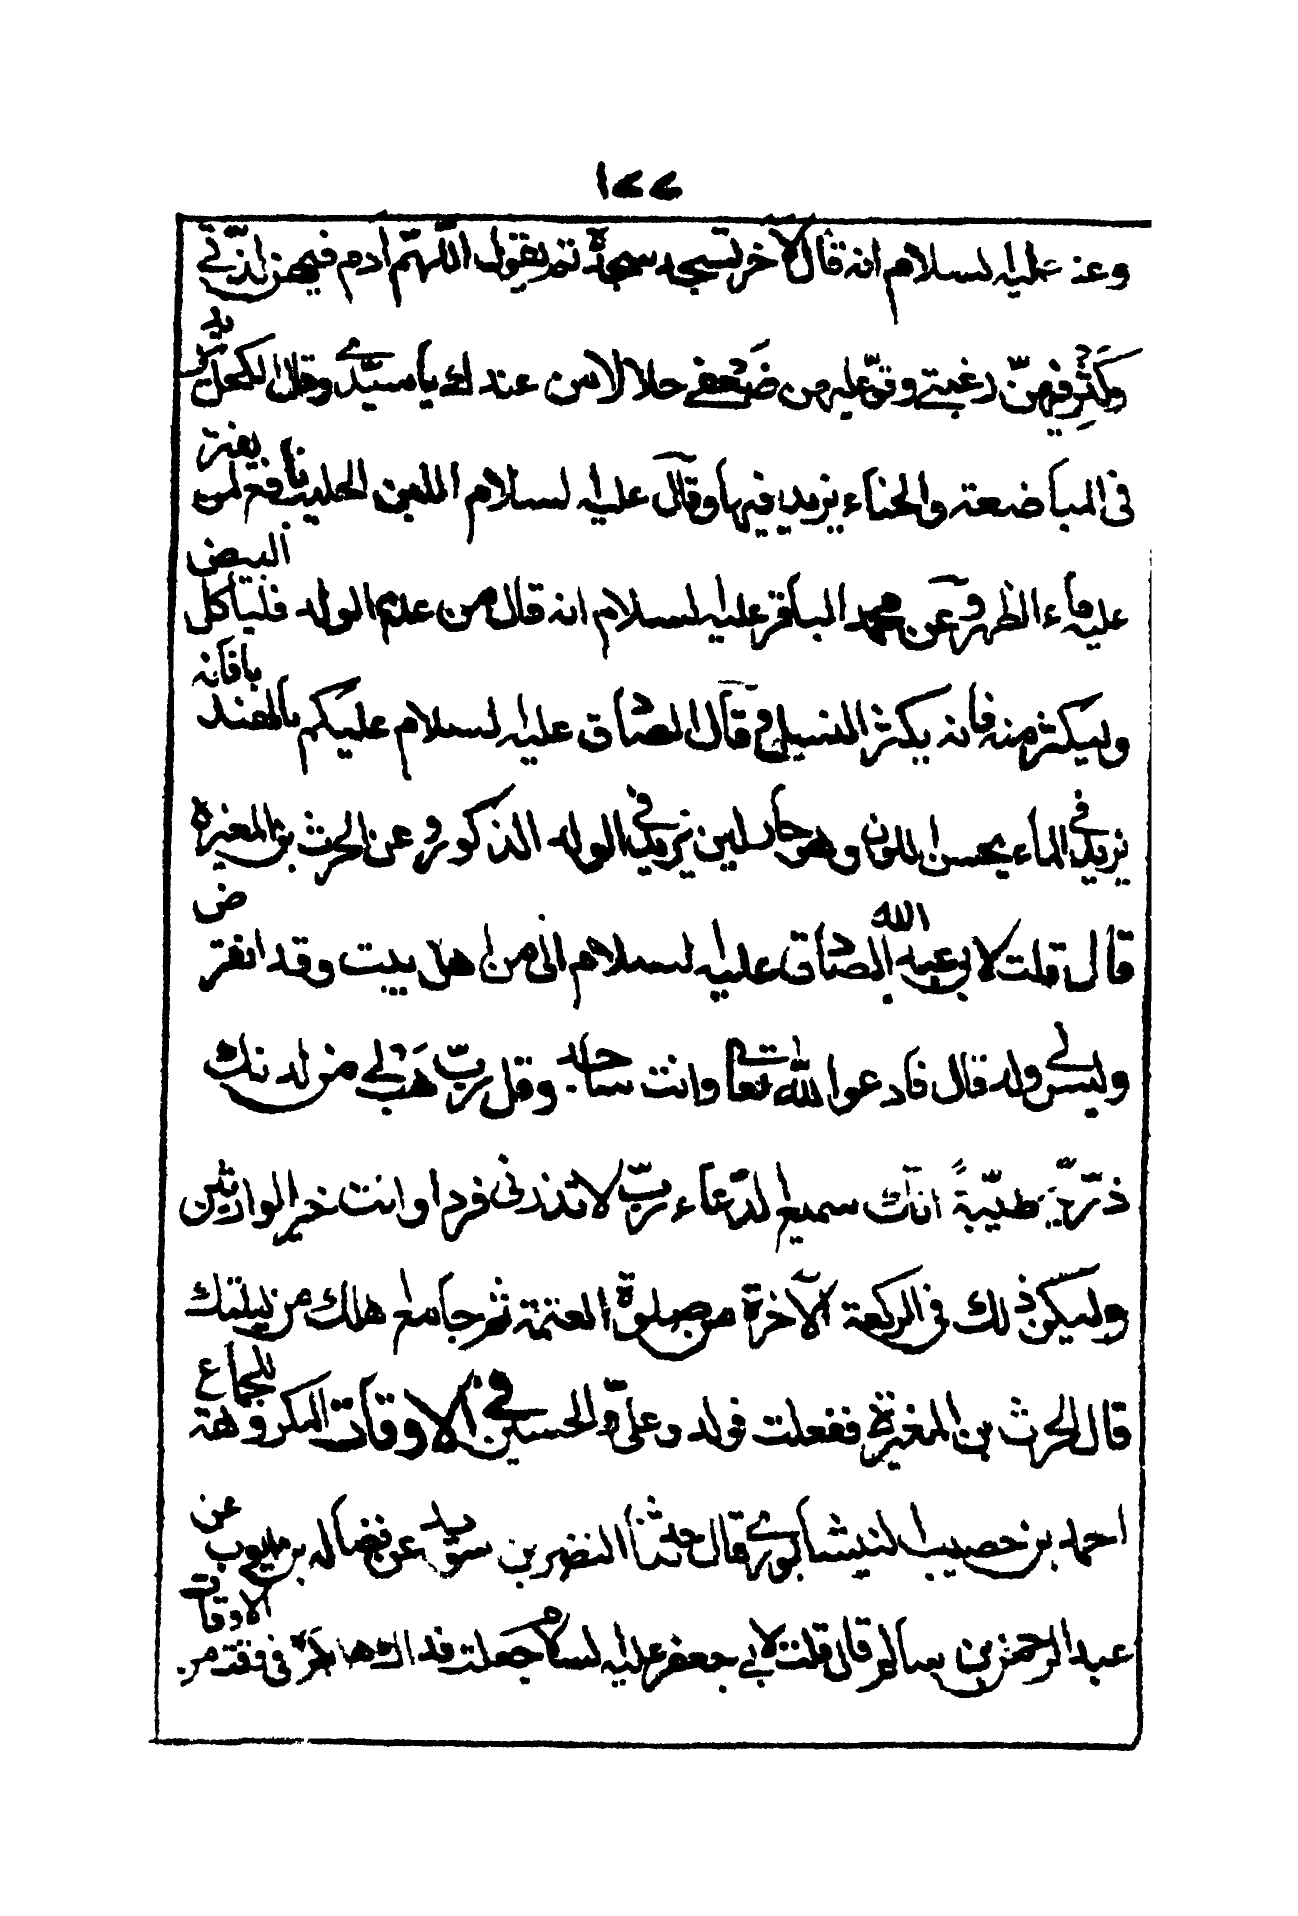 ١٧٧
وعنه عليه لسلام انه قال لآخر تسجد سجدة ثم يقول اللّهمّ ادم فيهن لذّتي
وكثّر فيهنّ رغبتي وقوّ عليه من ضعفي حلالا من عندك يا سيّدي وقال الكحل يزيد
في المباضعة والحناء يزيد فيها وقال عليه لسلام اللبن الحليب نافع لمن يفتر
عليه ماء الظهر وعن محمد الباقر عليه لسلام انه قال من عدم الولد فلياكل البيض
وليكثر منه فانه يكثر النسل وقال الصادق عليه لسلام عليكم بالهندبا فانه
يزيد في الماء يحسن اللون وهو حار لين يزيد في الولد الذكور وعن الحرث بن المغيرة
قال قلت لابي عبد الله الصادق عليه لسلام اني من اهل بيت وقد انقرض
وليس لي ولد قال فادعوا لله تعالى وانت ساجد وقل ربّ هب لي من لدنك
ذرّيّة طيّبة انّك سميع الدّعاء ربّ لا تذرني فردا وانت خير الوارثين
وليكن ذلك في الركعة الآخرة من صلوة العتمة ثم جامع اهلك من ليلتك
قال الحرث بن المغيرة ففعلت فولد وعليّ والحسين في الاوقات المكروهة للجماع
احمد بن خصيب النيشابوري قال حدثنا النضر بن سويد عن فضاله بن ايوب عن
عبد الرحمن بن سالم قال قلت لابي جعفر عليه لسلام جعلت فداك هل يكره في وقت من الاوقات